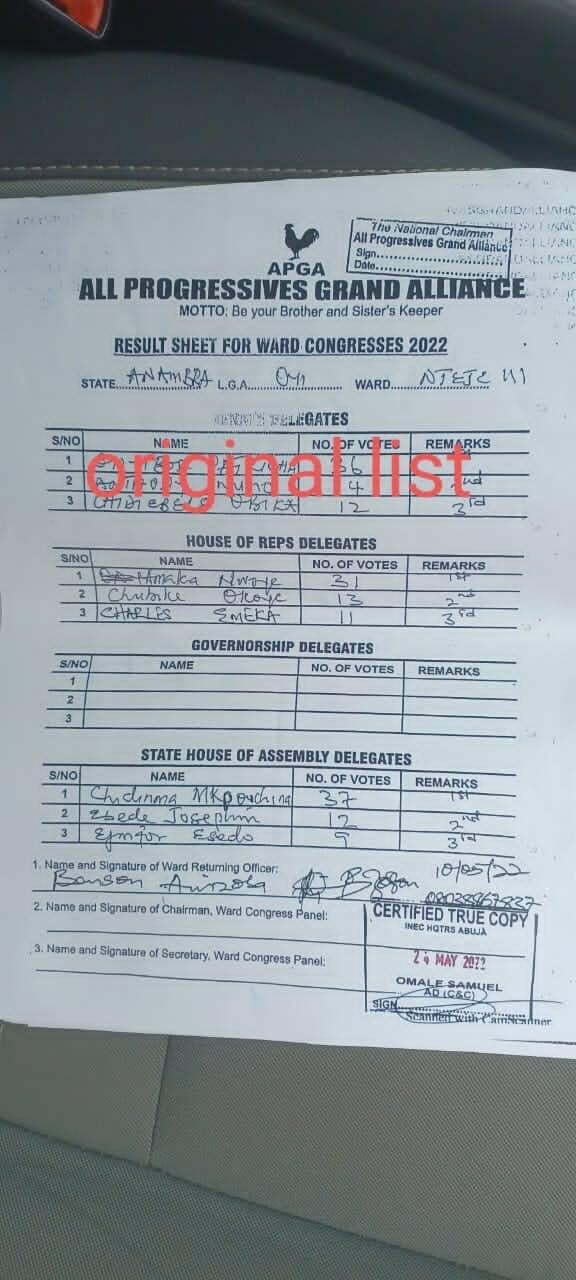 The National Chairman
All Progressives Grand Alliance
Sign..................
Date..................
APGA
ALL PROGRESSIVES GRAND ALLIANCE
MOTTO: Be your Brother and Sister's Keeper
RESULT SHEET FOR WARD CONGRESSES 2022
STATE ANAMBRA L.G.A. OYI WARD NTEJE III
DELEGATES
S/NO NAME NO. OF VOTES REMARKS
original list
1 36
2 14 2nd
3 CHIDIEBERE OBIKA 12 3rd
HOUSE OF REPS DELEGATES
S/NO NAME NO. OF VOTES REMARKS
1 Amaka Nwoye 31 1st
2 Chubike Okoye 13 2nd
3 CHARLES EMEKA 11 3rd
GOVERNORSHIP DELEGATES
S/NO NAME NO. OF VOTES REMARKS
1
2
3
STATE HOUSE OF ASSEMBLY DELEGATES
S/NO NAME NO. OF VOTES REMARKS
1 Chidinma 37 1st
2 Josephin 12 2nd
3 9 3rd
1. Name and Signature of Ward Returning Officer:
10/05/22
Benson
2. Name and Signature of Chairman, Ward Congress Panel:
3. Name and Signature of Secretary, Ward Congress Panel:
CERTIFIED TRUE COPY
INEC HQTRS ABUJA
24 MAY 2022
OMALE SAMUEL
AD (C&C)
SIGN
Scanned with CamScanner